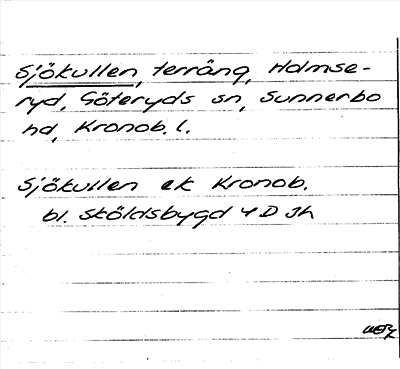 Sjökullen, terräng, Holmse-
ryd, Göteryds sn, Sunnerbo
hd, Kronob. l.
Sjökullen ek Kronob.
bl. Sköldsbygd 4 D Jh